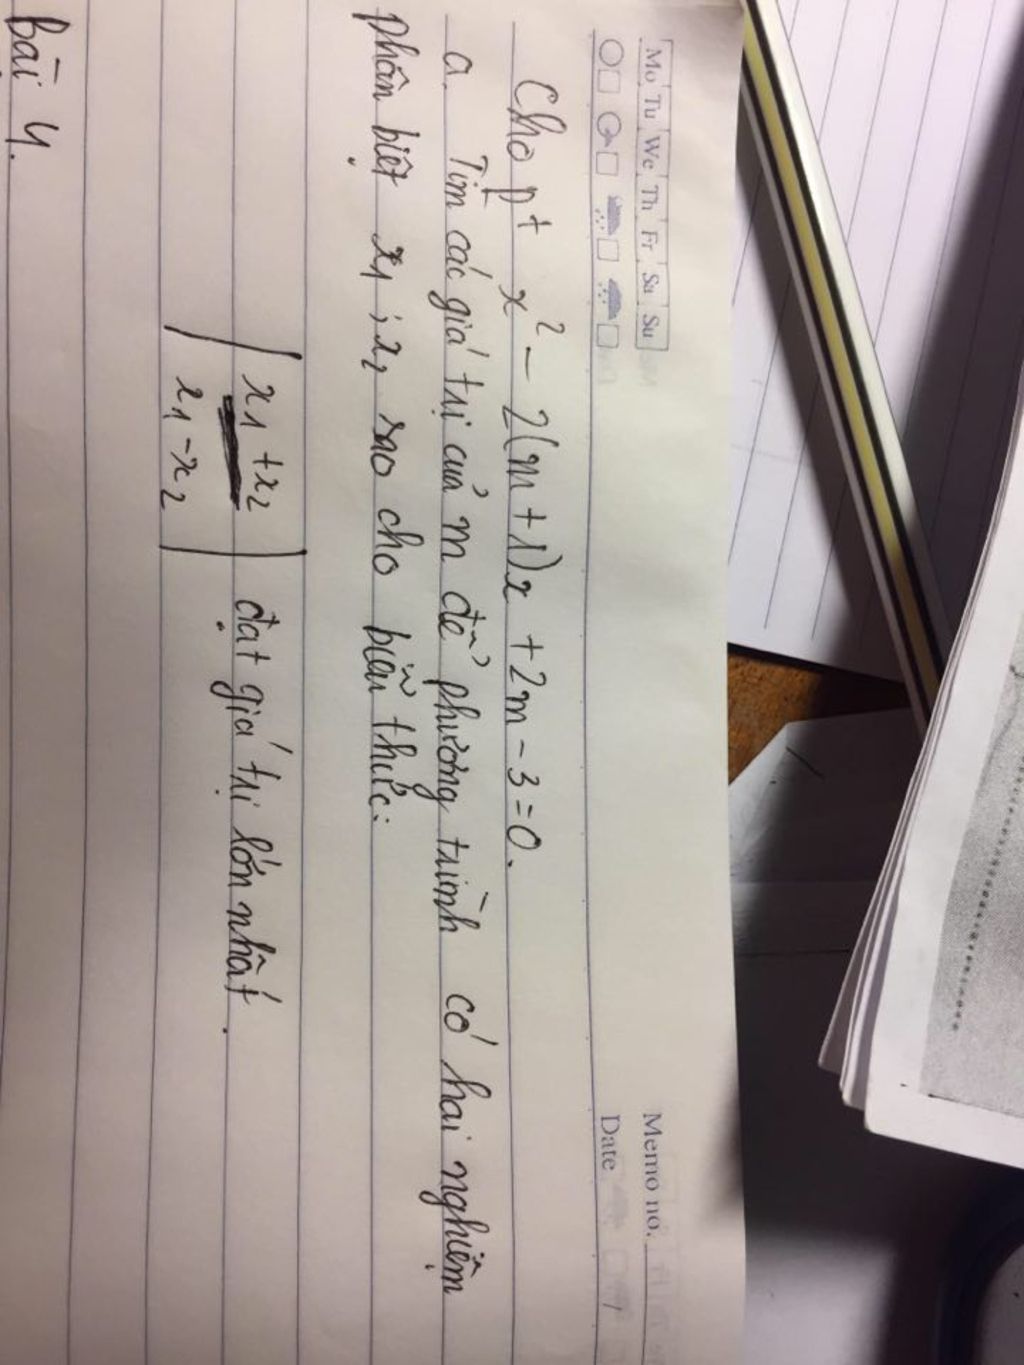 Mo Tu We Th Fr Sa Su
Memo no.
Date
Cho pt x² - 2(m + 1)x + 2m - 3 = 0.
a. Tìm các giá trị của m để phương trình có hai nghiệm
phân biệt x₁ ; x₂ sao cho biểu thức:
| x₁ + x₂ / x₁ - x₂ | đạt giá trị lớn nhất.
Bài 4.